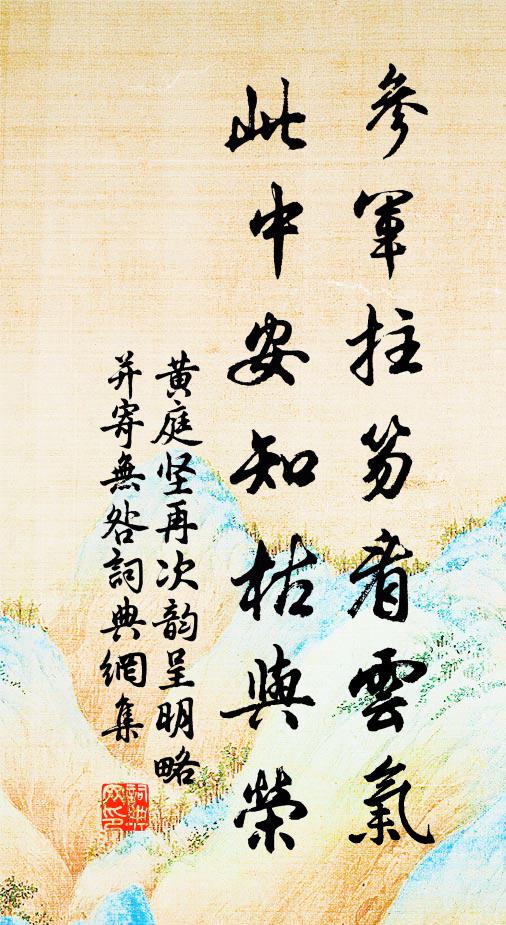 參軍拄笏看雲氣
此中安知枯與榮
黄庭坚再次韵呈明略
并寄無咎詞典網集